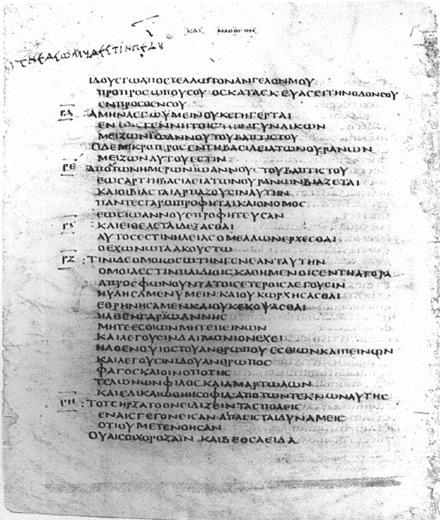 ΚΑΤ ΜΑΘΘΕΟΝ
ΙΔΟΥΕΓΩΑΠΟϹΤΕΛΛΩΤΟΝΑΓΓΕΛΟΝΜΟΥ
ΠΡΟΠΡΟϹΩΠΟΥϹΟΥ ΟϹΚΑΤΑϹΚΕΥΑϹΕΙΤΗΝΟΔΟΝϹΟΥ
ΕΝΠΡΟϹΘΕΝϹΟΥ
ΡΔ ΑΜΗΝΛΕΓΩΥΜΕΙΝΟΥΚΕΓΗΓΕΡΤΑΙ
ΕΝΤΟΙϹΓΕΝΝΗΤΟΙϹΤΩΝΓΥΝΑΙΚΩΝ
ΜΕΙΖΩΝΙΩΑΝΝΟΥΤΟΥΒΑΠΤΙϹΤΟΥ
ΟΔΕΜΙΚΡΟΤΕΡΟϹΕΝΤΗΒΑϹΙΛΕΙΑΤΩΝΟΥΡΑΝΩΝ
ΜΕΙΖΩΝΑΥΤΟΥΕϹΤΙΝ
ΡΕ ΑΠΟΤΩΝΗΜΕΡΩΝΙΩΑΝΝΟΥ ΤΟΥΒΑΠΤΙϹΤΟΥ
ΕΩϹΑΡΤΙΗΒΑϹΙΛΕΙΑΤΩΝΟΥΡΑΝΩΝΒΙΑΖΕΤΑΙ
ΚΑΙΟΙΒΙΑϹΤΑΙΑΡΠΑΖΟΥϹΙΝΑΥΤΗΝ
ΠΑΝΤΕϹΓΑΡΟΙΠΡΟΦΗΤΑΙΚΑΙΟΝΟΜΟϹ
ΕΩϹΙΩΑΝΝΟΥΕΠΡΟΦΗΤΕΥϹΑΝ
ΡϚ ΚΑΙΕΙΘΕΛΕΤΑΙΔΕΞΑϹΘΑΙ
ΑΥΤΟϹΕϹΤΙΝΗΛΕΙΑϹΟΜΕΛΛΩΝΕΡΧΕϹΘΑΙ
ΟΕΧΩΝΩΤΑΑΚΟΥΕΤΩ
ΡΖ ΤΙΝΙΔΕΟΜΟΙΩϹΩΤΗΝΓΕΝΕΑΝΤΑΥΤΗΝ
ΟΜΟΙΑΕϹΤΙΝΠΑΙΔΙΟΙϹΚΑΘΗΜΕΝΟΙϹΕΝΤΗΑΓΟΡΑ
ΑΠΡΟϹΦΩΝΟΥΝΤΑΤΟΙϹΕΤΕΡΟΙϹΛΕΓΟΥϹΙΝ
ΗΥΛΗϹΑΜΕΝΥΜΕΙΝΚΑΙΟΥΚΩΡΧΗϹΑϹΘΑΙ
ΕΘΡΗΝΗϹΑΜΕΝΚΑΙΟΥΚΕΚΟΨΑϹΘΑΙ
ΗΛΘΕΝΓΑΡΙΩΑΝΝΗϹ
ΜΗΤΕΕϹΘΙΩΝΜΗΤΕΠΕΙΝΩΝ
ΚΑΙΛΕΓΟΥϹΙΝΔΑΙΜΟΝΙΟΝΕΧΕΙ
ΗΛΘΕΝΟΥΙΟϹΤΟΥΑΝΘΡΩΠΟΥΕϹΘΙΩΝΚΑΙΠΕΙΝΩΝ
ΚΑΙΛΕΓΟΥϹΙΝΙΔΟΥΑΝΘΡΩΠΟϹ
ΦΑΓΟϹΚΑΙΟΙΝΟΠΟΤΗϹ
ΤΕΛΩΝΩΝΦΙΛΟϹΚΑΙΑΜΑΡΤΩΛΩΝ
ΚΑΙΕΔΙΚΑΙΩΘΗΗϹΟΦΙΑΑΠΟΤΩΝΤΕΚΝΩΝΑΥΤΗϹ
ΡΗ ΤΟΤΕΗΡΞΑΤΟΟΝΕΙΔΙΖΕΙΝΤΑϹΠΟΛΕΙϹ
ΕΝΑΙϹΓΕΓΟΝΕΙϹΑΝΑΙΠΛΕΙϹΤΑΙΔΥΝΑΜΕΙϹ
ΟΤΙΟΥΜΕΤΕΝΟΗϹΑΝ
ΟΥΑΙϹΟΙΧΟΡΟΖΑΙΝ ΚΑΙΒΕΘϹΑΕΙΔΑ